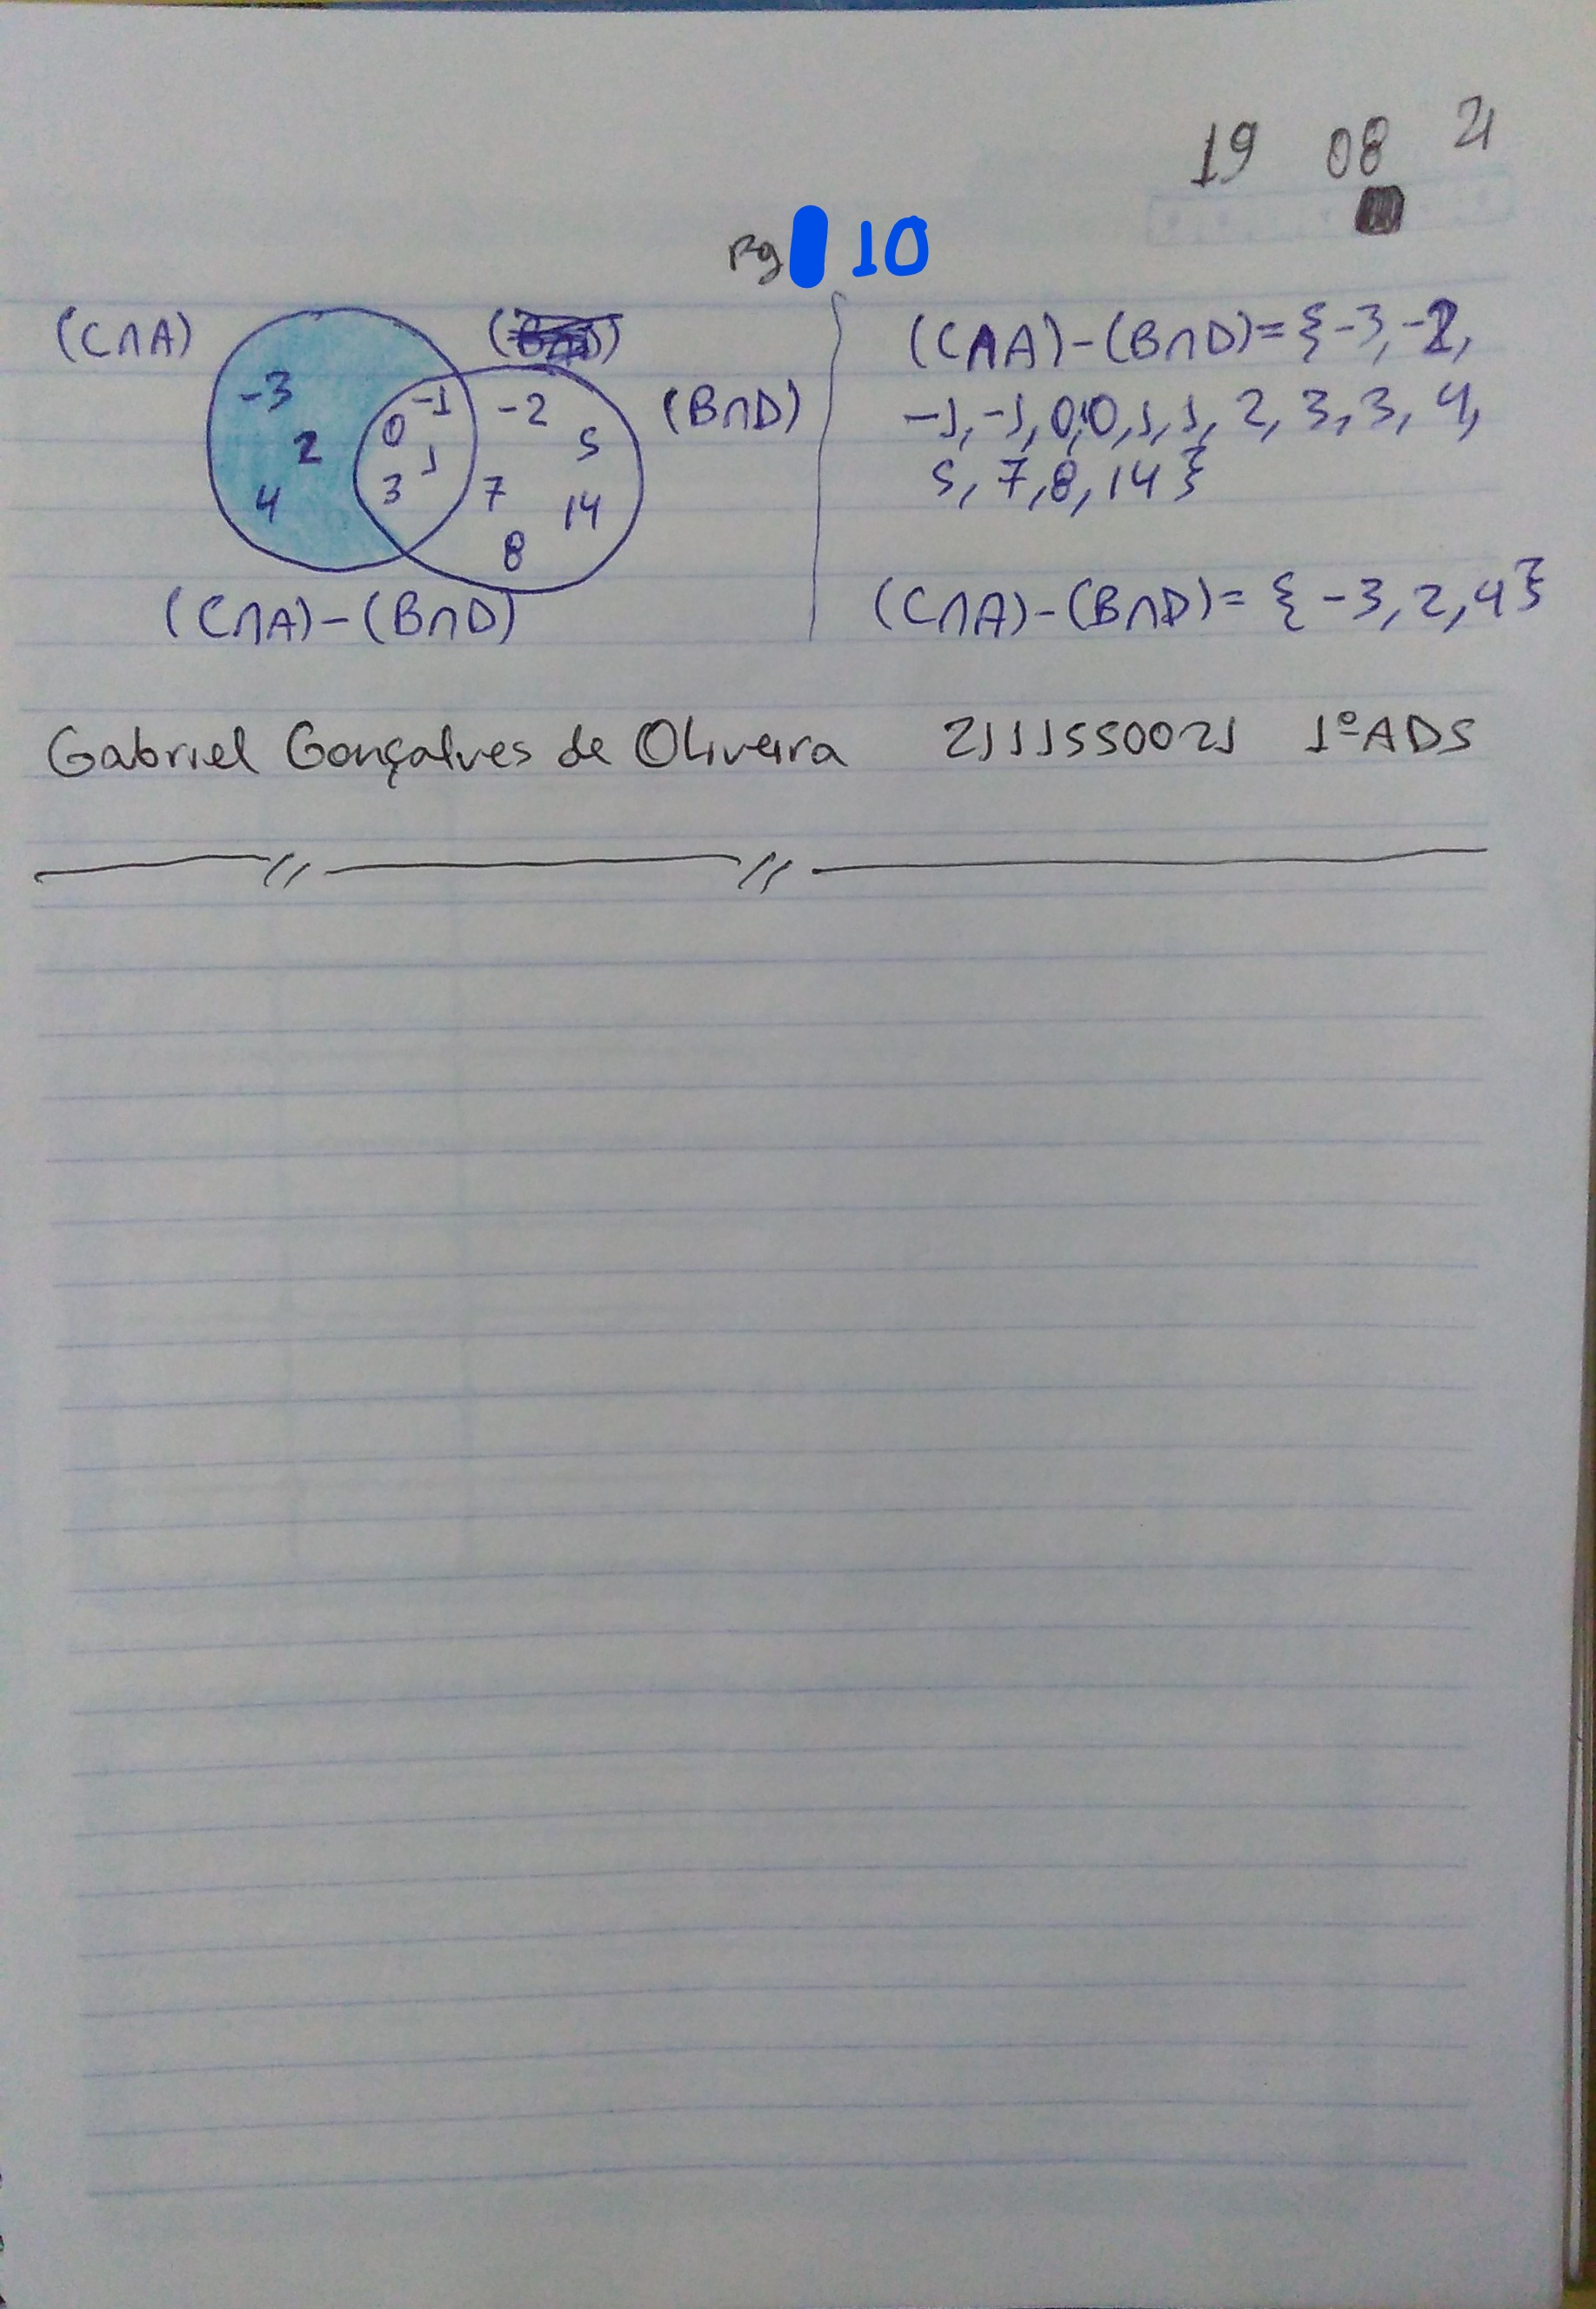 19 08 21
Pg 10
(C∩A)
(B∩D)
-3
2
4
0 -1
1
3
-2
5
7
14
8
(C∩A)-(B∩D)
(C∩A)-(B∩D)={-3,-2,
-1,-1,0,0,1,1,2,3,3,4,
5,7,8,14}
(C∩A)-(B∩D)={-3,2,4}
Gabriel Gonçalves de Oliveira 2111550021 1º ADS